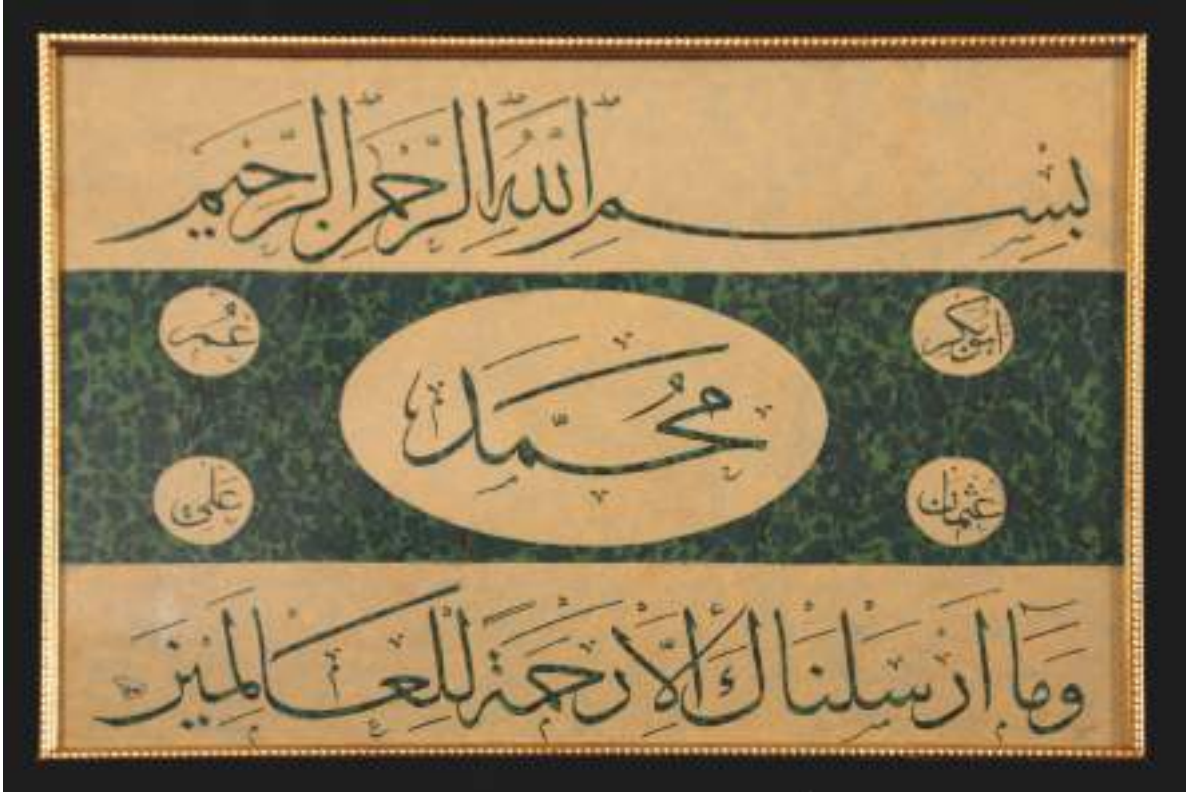 بِسْمِ اللّٰهِ الرَّحْمٰنِ الرَّحِيمِ
ابوبكر
عُمَر
مُحَمَّد
عُثمان
عَلى
وَمَا اَرْسَلْنَاكَ اِلَّا رَحْمَةً لِلْعَالَمِينَ